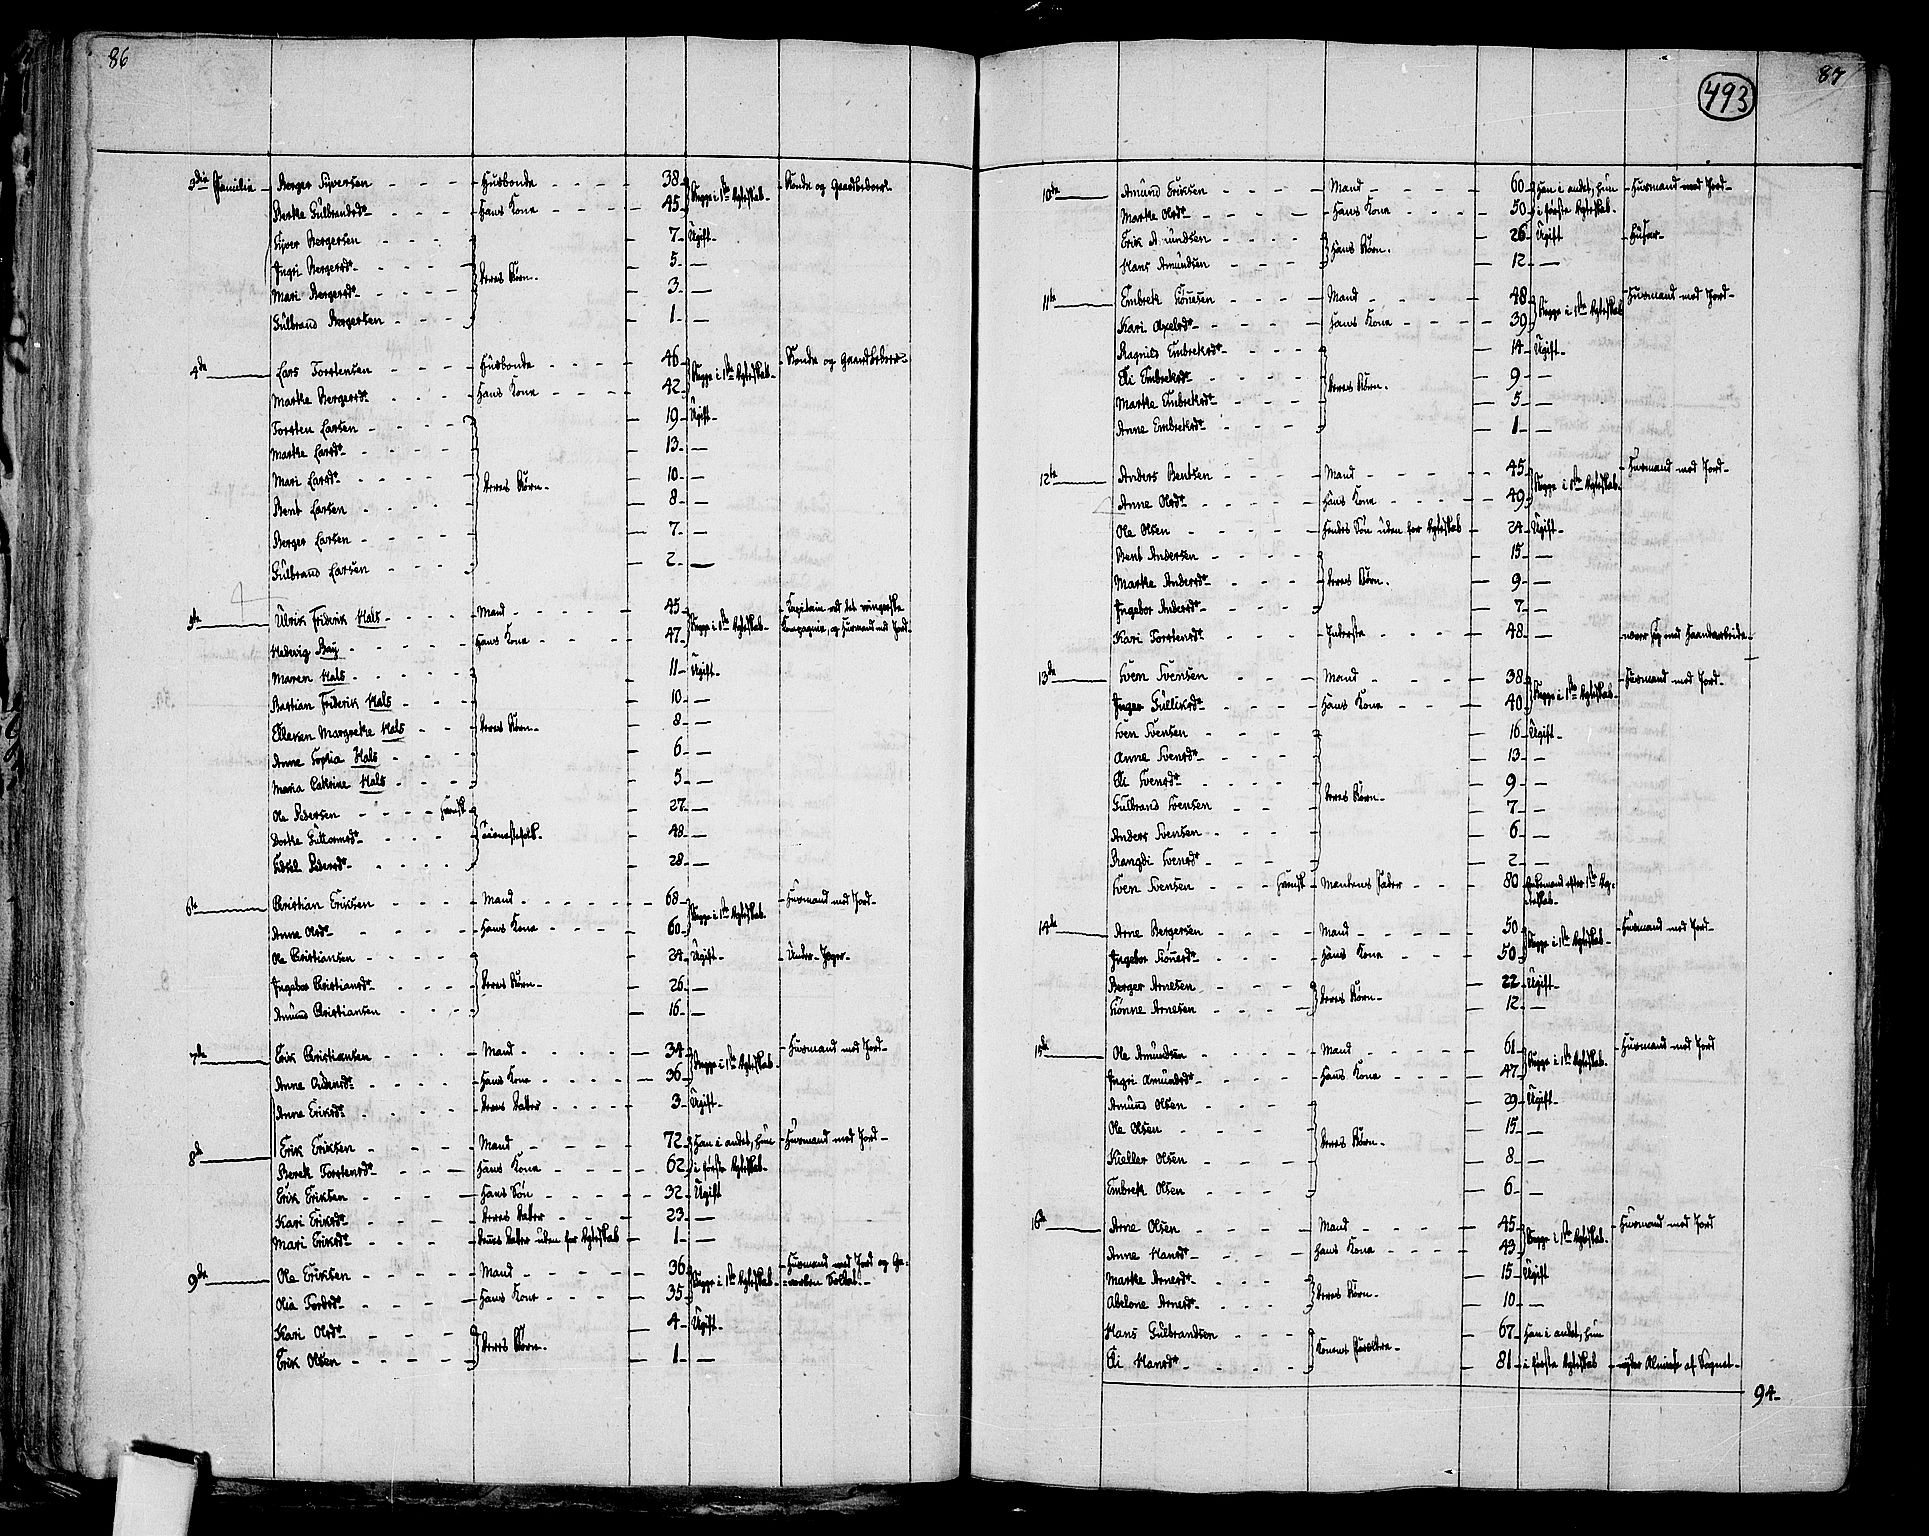 86
3die Familie Berger Syversen Husbonde 38 Begge i 1ste Ægteskab Bonde og Gaardbeboer
Berthe Gulbrandsdr Hans Kone 45
Syver Bergersen 7 Ugift
Ingri Bergersdr Deres Børn 5
Mari Bergersdr 3
Gulbrand Bergersen 1
4de Lars Torstensen Husbonde 46 Begge i 1ste Ægteskab Bonde og Gaardbeboer
Marthe Bergersdr Hans Kone 42
Torsten Larsen 19 Ugift
Marthe Larsdr 13
Mari Larsdr Deres Børn 10
Bent Larsen 8
Berger Larsen 7
Gulbrand Larsen 2
5te Ulrik Friderik Hals Mand 45 Begge i 1ste Ægteskab Kapitain ved det vingerske
Hedevig Bay Hans Kone 47 Kompagnie, og Huusmand med Jord
Maren Hals 11 Ugift
Bastian Friderik Hals 10
Elleken Margrethe Hals Deres Børn 8
Anne Sophia Hals 6
Maria Cathrine Hals 5
Ole Pedersen 27
Dorthe Guttormsdr Tienestefolk 48
Sidsel Pedersdr 28
6te Christian Eriksen Mand 68 Begge i 1ste Ægteskab Huusmand med Jord
Anne Olsdr Hans Kone 60
Ole Christiansen 24 Ugift Under-Jæger
Ingebor Christiansdr Deres Børn 26
Amund Christiansen 16
7de Erik Christiansen Mand 34 Begge i 1ste Ægteskab Huusmand med Jord
Anne Hans Kone 36
Anne Eriksdr Deres Datter 3 Ugift
8de Erik Eriksen Mand 72 Han i andet, hun Huusmand med Jord
Torstensdr Hans Kone 62 i første Ægteskab
Erik Eriksen Hans Søn 32 Ugift
Kari Eriksdr Deres Datter 23
Mari Eriksdr Datter uden for Ægteskab 1
9de Ole Eriksen Mand 36 Begge i 1ste Ægteskab Huusmand med Jord og Ge-
Olia Hans Kone 35 =vorben Soldat
Kari Olsdr 4 Ugift
Erik Olsen Deres Børn 1
493
87
10de Amund Eriksen Mand 60 Han i andet, hun Huusmand med Jord
Marthe Olsdr Hans Kone 50 i første Ægteskab
Erik Amundsen Hans Børn 26 Ugift Husar
Hans Amundsen 12
11te Embrek Mand 48 Begge i 1ste Ægteskab Huusmand med Jord
Kari Axelsdr Hans Kone 39
Ragnild Embreksdr 14 Ugift
Eli Embreksdr Deres Børn 9
Marthe Embreksdr 5
Anne Embreksdr 1
12te Anders Bentsen Mand 45 Begge i 1ste Ægteskab Huusmand med Jord
Anne Olsdr Hans Kone 49
Ole Olsen Hendes Søn uden for Ægteskab 24 Ugift
Bent Andersen 15
Marthe Andersdr Deres Børn 9
Ingebor Andersdr 7
Kari Torstensdr Inderste 48 nærer sig med Haandarbeide
13de Sven Svensen Mand 38 Begge i 1ste Ægteskab Huusmand med Jord
Inger Gulliksdr Hans Kone 40
Sven Svensen 16 Ugift
Anne Svensdr 13
Eli Svensdr 9
Gulbrand Svensen Deres Børn 7
Anders Svensen 6
Svensdr 2
Sven Svensen Mandens Fader 80 Enkemand efter 1ste Æg-
teskab
14de Arne Bergersen Mand 50 Begge i 1ste Ægteskab Huusmand med Jord
Ingebor Hans Kone 50
Berger Arnesen Deres Børn 22 Ugift
Arnesen 12
15de Ole Amundsen Mand 61 Begge i 1ste Ægteskab Huusmand med Jord
Ingri Amundsdr Hans Kone 47
Amund Olsen 29 Ugift
Ole Olsen Deres Børn 15
Kieller Olsen 8
Embrek Olsen 6
16de Arne Olsen Mand 45 Begge i 1ste Ægteskab Huusmand med Jord
Anne Hansdr Hans Kone 43
Marthe Arnesdr Deres Børn 15 Ugift
Abelone Arnesdr 10
Hans Gulbrandsen Konens Forældre 67 Han i andet, hun
Eli Hansdr 81 i første Ægteskab nyder Almisse af Sognet
94